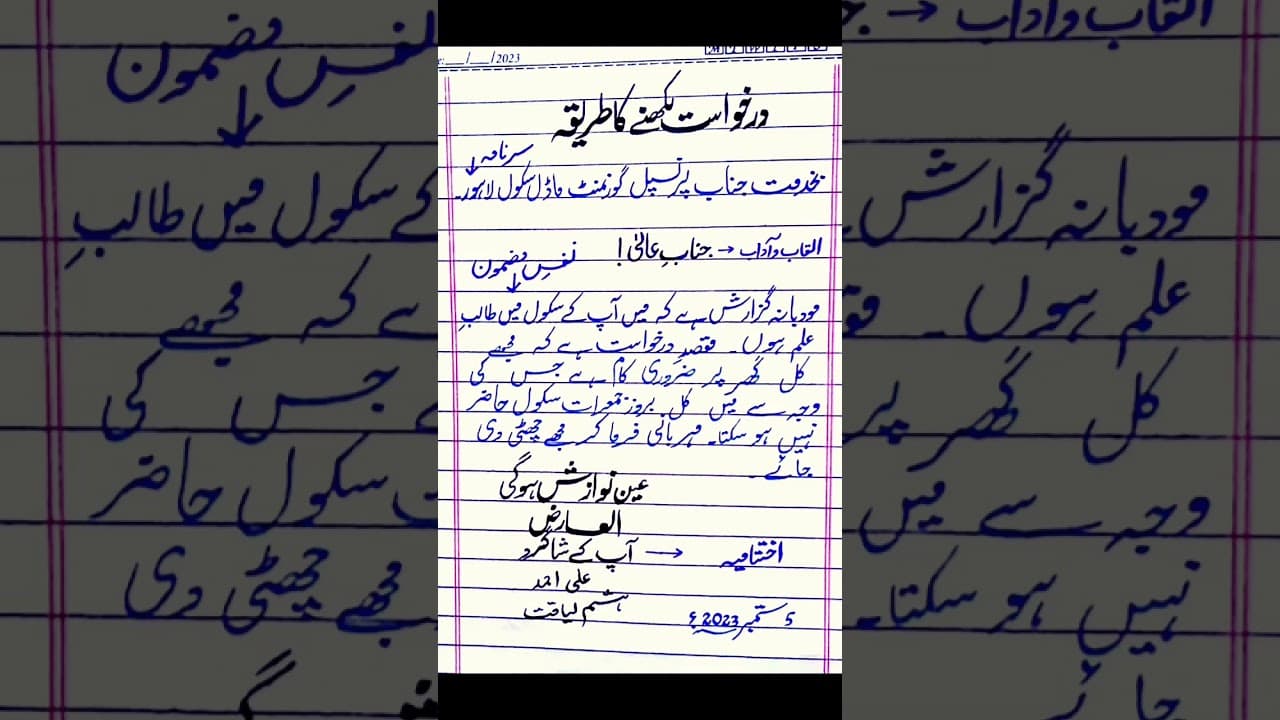 /2023
درخواست لکھنے کا طریقہ
سرنامہ
بخدمت جناب پرنسپل گورنمنٹ ماڈل سکول لاہور۔
القاب و آداب → جنابِ عالی!
نفسِ مضمون
مودبانہ گزارش ہے کہ میں آپ کے سکول میں طالبِ
علم ہوں۔ مقصدِ درخواست ہے کہ مجھے
کل گھر پر ضروری کام ہے جس کی
وجہ سے میں کل بروز جمعرات سکول حاضر
نہیں ہو سکتا۔ مہربانی فرما کر مجھے چھٹی دی
جائے۔
عین نوازش ہوگی
العارض
اختتامیہ → آپ کے شاگرد
علی احمد
ہشتم لیاقت
5 ستمبر 2023ء